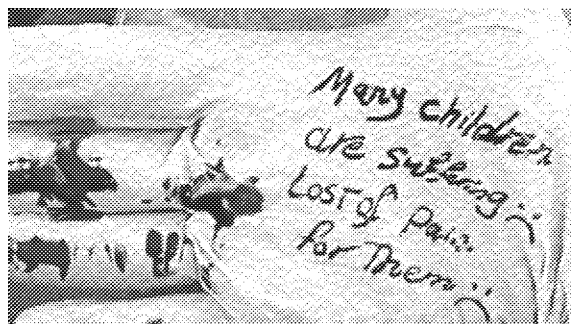 Many children
are suffering :(
Lost of pain
for Them :(